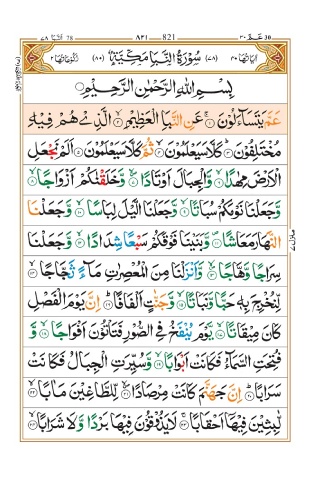 عَمَّ 30    821    ٨٢١    النبا 78
اٰیَاتُهَا ٤٠ (٧٨) سُوْرَةُ النَّبَاِ مَكِّیَّةٌ (٨٠) رُكُوْعَاتُهَا ٢
بِسْمِ اللّٰهِ الرَّحْمٰنِ الرَّحِیْمِ
عَمَّ یَتَسَآءَلُوْنَ ۝١ عَنِ النَّبَاِ الْعَظِیْمِ ۝٢ الَّذِیْ هُمْ فِیْهِ
مُخْتَلِفُوْنَ ۝٣ كَلَّا سَیَعْلَمُوْنَ ۝٤ ثُمَّ كَلَّا سَیَعْلَمُوْنَ ۝٥ اَلَمْ نَجْعَلِ
الْاَرْضَ مِهٰدًا ۝٦ وَّالْجِبَالَ اَوْتَادًا ۝٧ وَّخَلَقْنٰكُمْ اَزْوَاجًا ۝٨
وَّجَعَلْنَا نَوْمَكُمْ سُبَاتًا ۝٩ وَّجَعَلْنَا الَّیْلَ لِبَاسًا ۝١٠ وَّجَعَلْنَا
النَّهَارَ مَعَاشًا ۝١١ وَّبَنَیْنَا فَوْقَكُمْ سَبْعًا شِدَادًا ۝١٢ وَّجَعَلْنَا
سِرَاجًا وَّهَّاجًا ۝١٣ وَّاَنْزَلْنَا مِنَ الْمُعْصِرٰتِ مَآءً ثَجَّاجًا ۝١٤
لِّنُخْرِجَ بِهٖ حَبًّا وَّنَبَاتًا ۝١٥ وَّجَنّٰتٍ اَلْفَافًا ۝١٦ اِنَّ یَوْمَ الْفَصْلِ
كَانَ مِیْقَاتًا ۝١٧ یَّوْمَ یُنْفَخُ فِی الصُّوْرِ فَتَاْتُوْنَ اَفْوَاجًا ۝١٨ وَّ
فُتِحَتِ السَّمَآءُ فَكَانَتْ اَبْوَابًا ۝١٩ وَّسُیِّرَتِ الْجِبَالُ فَكَانَتْ
سَرَابًا ۝٢٠ اِنَّ جَهَنَّمَ كَانَتْ مِرْصَادًا ۝٢١ لِّلطَّاغِیْنَ مَاٰبًا ۝٢٢
لّٰبِثِیْنَ فِیْهَاۤ اَحْقَابًا ۝٢٣ لَا یَذُوْقُوْنَ فِیْهَا بَرْدًا وَّلَا شَرَابًا ۝٢٤